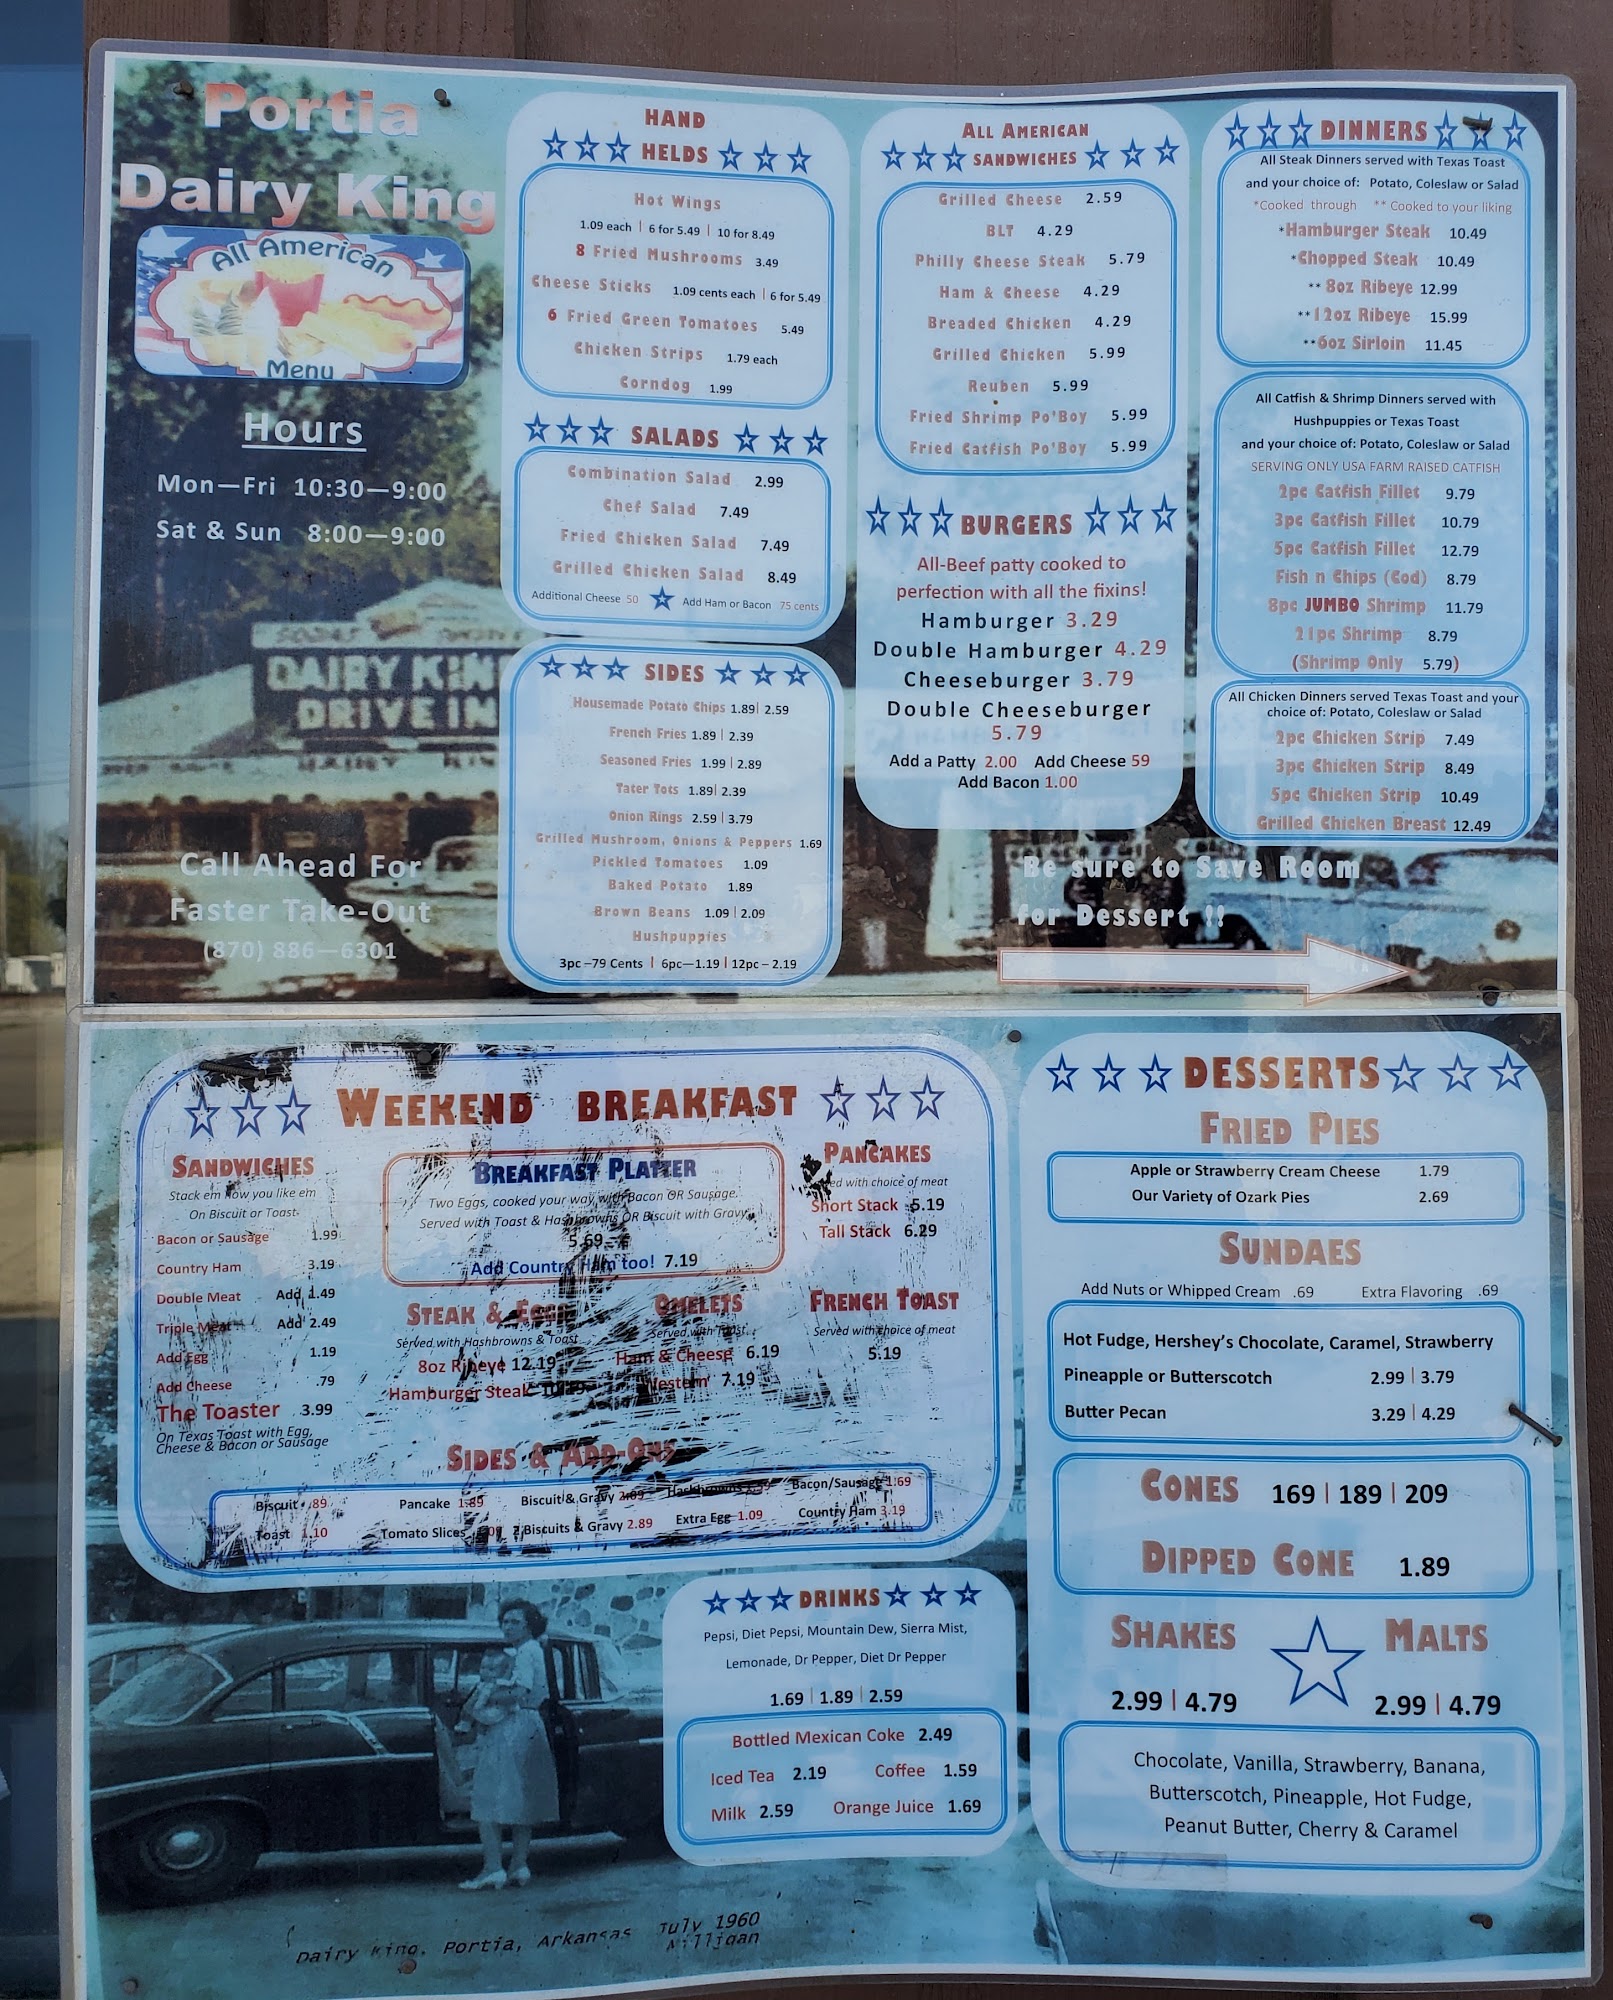 Portia
Dairy King
All American
Menu
Hours
Mon—Fri 10:30—9:00
Sat & Sun 8:00—9:00
DAIRY KIN
DRIVE IN
Call Ahead For
Faster Take-Out
(870) 886—6301
HAND
HELDS
Hot Wings
1.09 each | 6 for 5.49 | 10 for 8.49
8 Fried Mushrooms 3.49
Cheese Sticks 1.09 cents each | 6 for 5.49
6 Fried Green Tomatoes 5.49
Chicken Strips 1.79 each
Corndog 1.99
SALADS
Combination Salad 2.99
Chef Salad 7.49
Fried Chicken Salad 7.49
Grilled Chicken Salad 8.49
Additional Cheese 50 Add Ham or Bacon 75 cents
SIDES
Housemade Potato Chips 1.89| 2.59
French Fries 1.89 | 2.39
Seasoned Fries 1.99 | 2.89
Tater Tots 1.89| 2.39
Onion Rings 2.59 | 3.79
Grilled Mushroom, Onions & Peppers 1.69
Pickled Tomatoes 1.09
Baked Potato 1.89
Brown Beans 1.09 | 2.09
Hushpuppies
3pc –79 Cents | 6pc—1.19 | 12pc – 2.19
ALL AMERICAN
SANDWICHES
Grilled Cheese 2.59
BLT 4.29
Philly Cheese Steak 5.79
Ham & Cheese 4.29
Breaded Chicken 4.29
Grilled Chicken 5.99
Reuben 5.99
Fried Shrimp Po'Boy 5.99
Fried Catfish Po'Boy 5.99
BURGERS
All-Beef patty cooked to
perfection with all the fixins!
Hamburger 3.29
Double Hamburger 4.29
Cheeseburger 3.79
Double Cheeseburger
5.79
Add a Patty 2.00 Add Cheese 59
Add Bacon 1.00
DINNERS
All Steak Dinners served with Texas Toast
and your choice of: Potato, Coleslaw or Salad
*Cooked through ** Cooked to your liking
*Hamburger Steak 10.49
*Chopped Steak 10.49
** 8oz Ribeye 12.99
**12oz Ribeye 15.99
**6oz Sirloin 11.45
All Catfish & Shrimp Dinners served with
Hushpuppies or Texas Toast
and your choice of: Potato, Coleslaw or Salad
SERVING ONLY USA FARM RAISED CATFISH
2pc Catfish Fillet 9.79
3pc Catfish Fillet 10.79
5pc Catfish Fillet 12.79
Fish n Chips (Cod) 8.79
8pc JUMBO Shrimp 11.79
21pc Shrimp 8.79
(Shrimp Only 5.79)
All Chicken Dinners served Texas Toast and your
choice of: Potato, Coleslaw or Salad
2pc Chicken Strip 7.49
3pc Chicken Strip 8.49
5pc Chicken Strip 10.49
Grilled Chicken Breast 12.49
Be sure to Save Room
for Dessert !!
WEEKEND BREAKFAST
SANDWICHES
Stack em how you like em
On Biscuit or Toast
Bacon or Sausage 1.99
Country Ham 3.19
Double Meat Add 1.49
Triple Meat Add 2.49
Add Egg 1.19
Add Cheese .79
The Toaster 3.99
On Texas Toast with Egg,
Cheese & Bacon or Sausage
BREAKFAST PLATTER
Two Eggs, cooked your way with Bacon OR Sausage.
Served with Toast & Hashbrowns OR Biscuit with Gravy
5.69
Add Country Ham too! 7.19
STEAK & EGGS
Served with Hashbrowns & Toast
8oz Ribeye 12.19
Hamburger Steak
OMELETS
Served with Toast
Ham & Cheese 6.19
Western 7.19
PANCAKES
with choice of meat
Short Stack 5.19
Tall Stack 6.29
FRENCH TOAST
Served with choice of meat
5.19
SIDES & ADD-ONS
Biscuit .89 Pancake 1.89 Biscuit & Gravy Hashbrowns Bacon/Sausage 1.69
Toast 1.10 Tomato Slices 2 Biscuits & Gravy 2.89 Extra Egg 1.09 Country Ham 3.19
DRINKS
Pepsi, Diet Pepsi, Mountain Dew, Sierra Mist,
Lemonade, Dr Pepper, Diet Dr Pepper
1.69 | 1.89 | 2.59
Bottled Mexican Coke 2.49
Iced Tea 2.19 Coffee 1.59
Milk 2.59 Orange Juice 1.69
DESSERTS
FRIED PIES
Apple or Strawberry Cream Cheese 1.79
Our Variety of Ozark Pies 2.69
SUNDAES
Add Nuts or Whipped Cream .69 Extra Flavoring .69
Hot Fudge, Hershey's Chocolate, Caramel, Strawberry
Pineapple or Butterscotch 2.99 | 3.79
Butter Pecan 3.29 | 4.29
CONES 169 | 189 | 209
DIPPED CONE 1.89
SHAKES MALTS
2.99 | 4.79 2.99 | 4.79
Chocolate, Vanilla, Strawberry, Banana,
Butterscotch, Pineapple, Hot Fudge,
Peanut Butter, Cherry & Caramel
Dairy King, Portia, Arkansas July 1960
Milligan